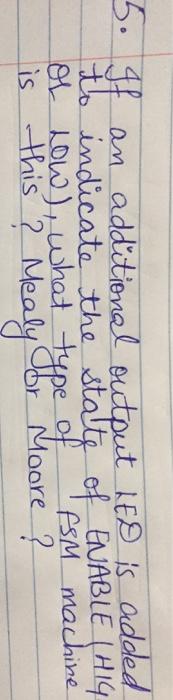 5. If an additional output LED is added
to indicate the state of ENABLE (HIG
or LOW), what type of FSM machine
is this? Mealy or Moore?